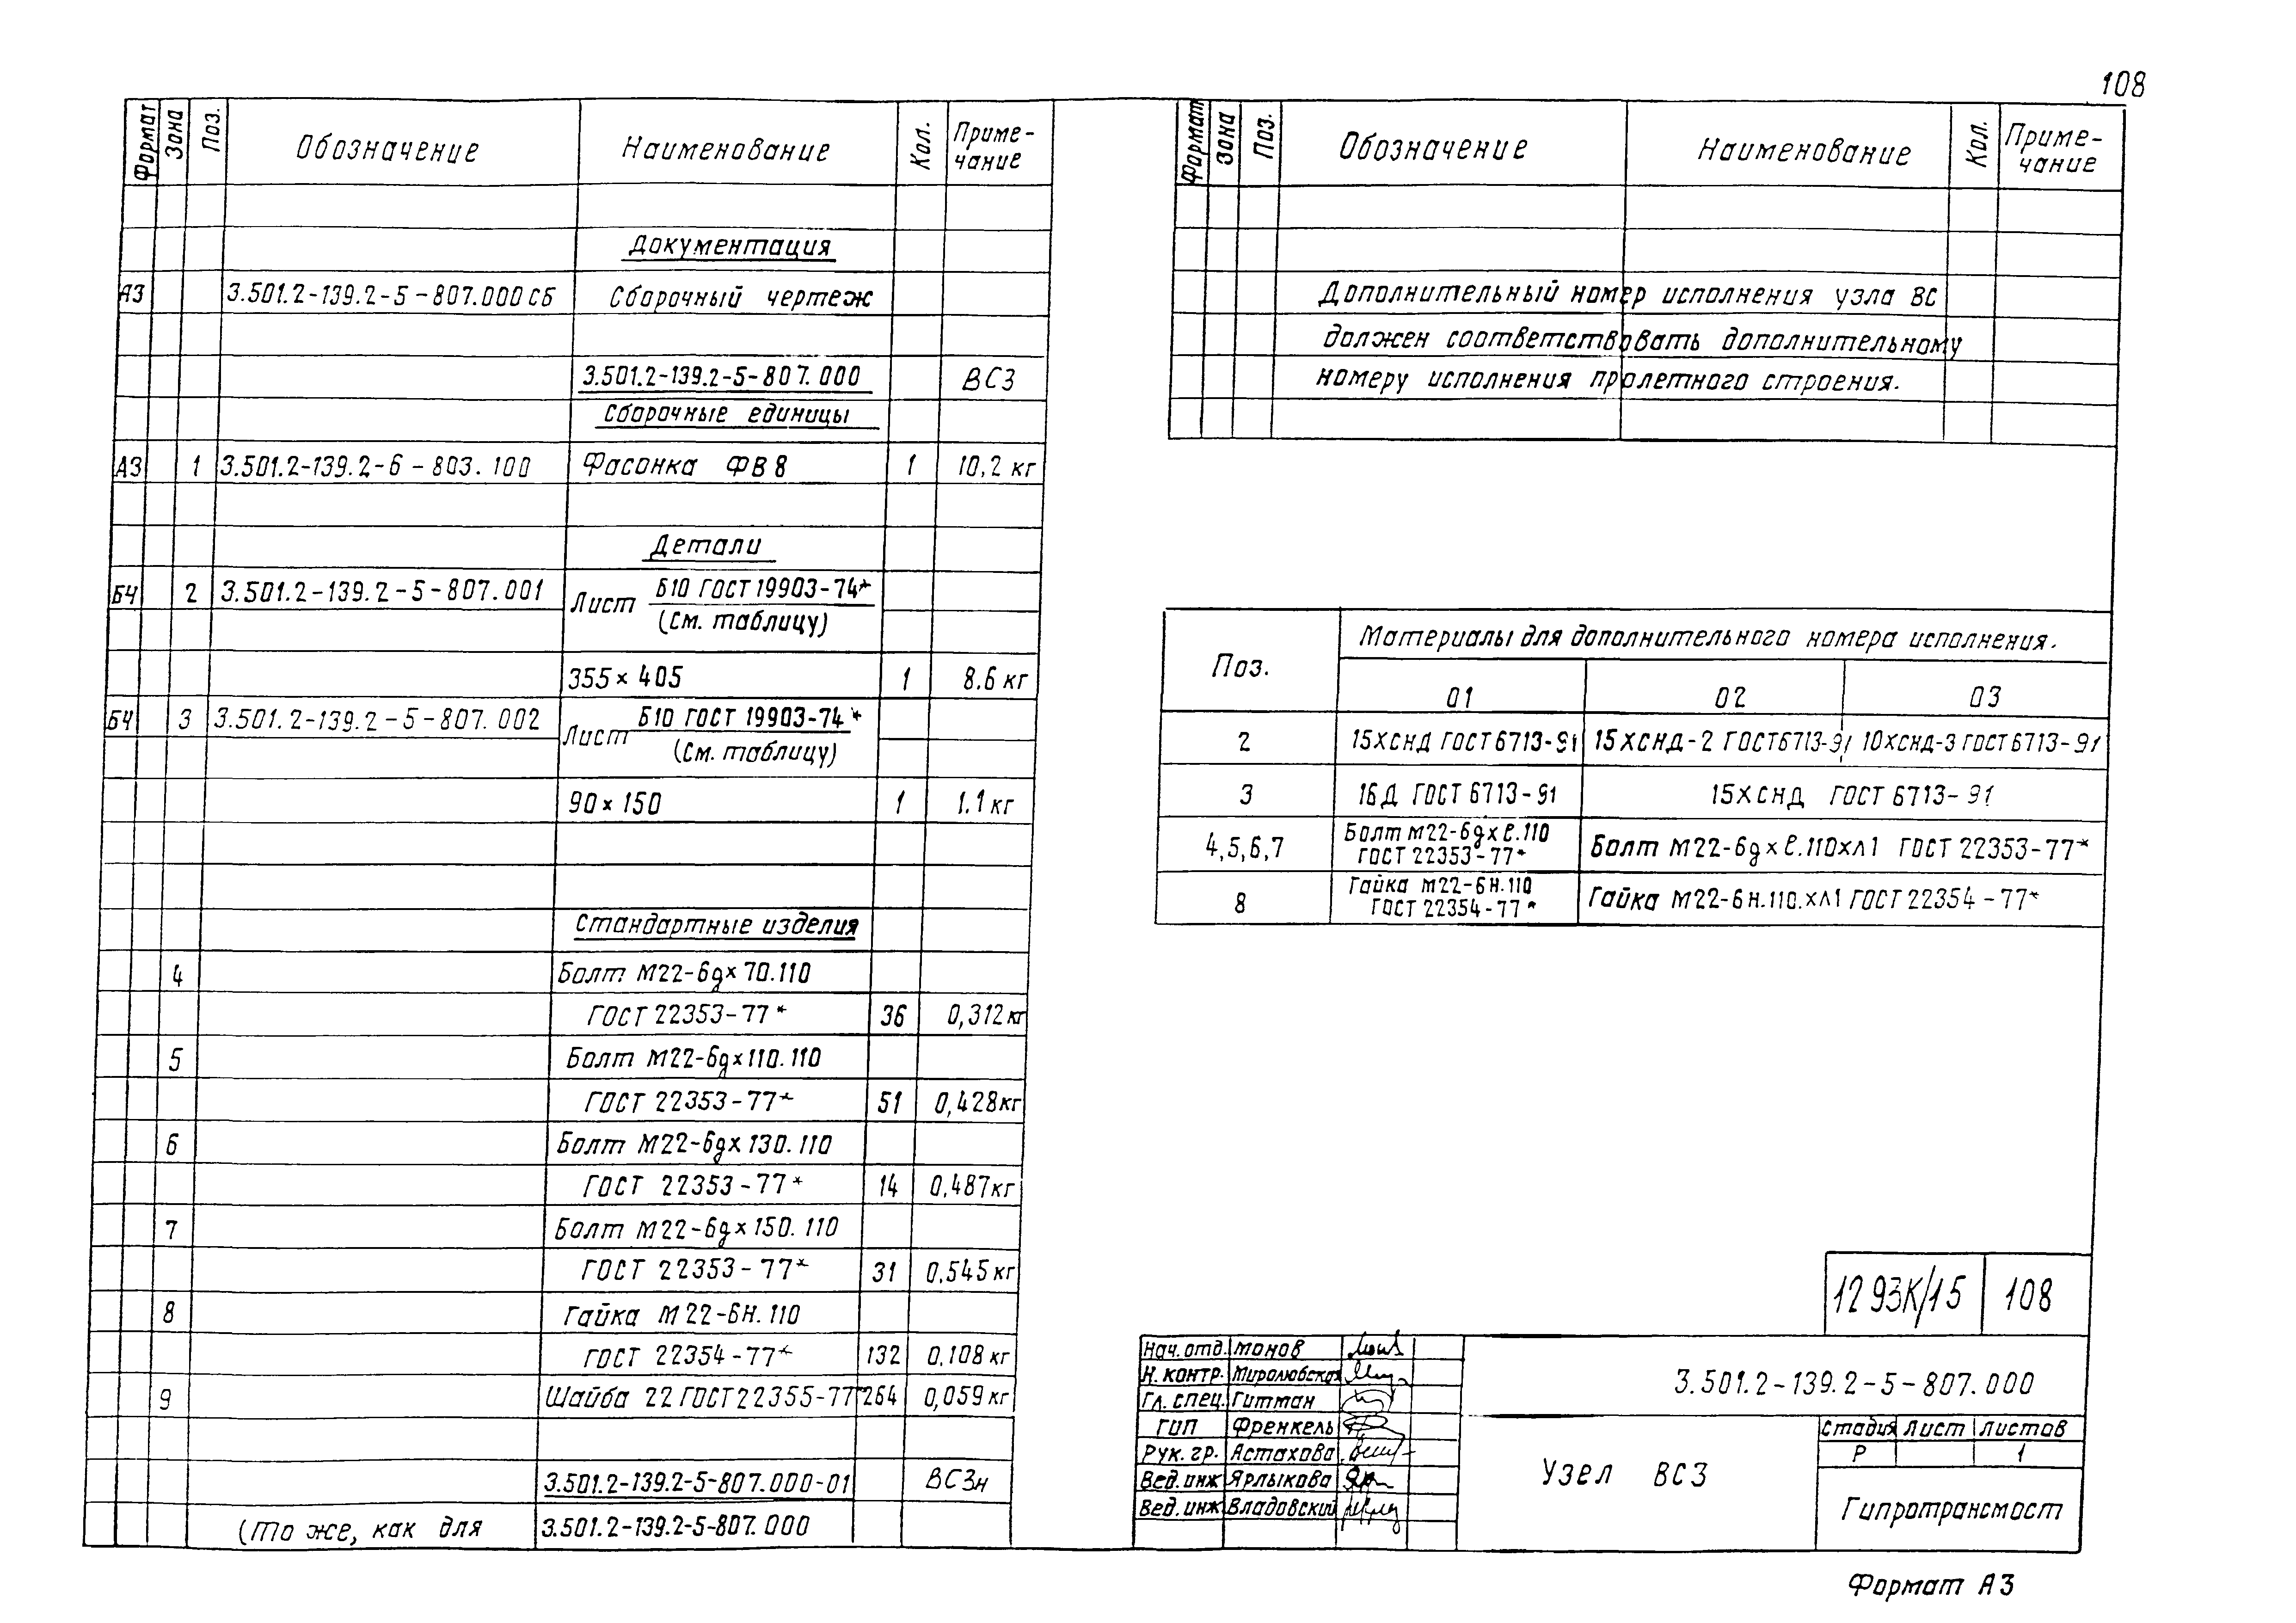 108
Формат Зона Поз. Обозначение Наименование Кол. Приме-
чание
Документация
А3 3.501.2-139.2-5-807.000СБ Сборочный чертеж
3.501.2-139.2-5-807.000 ВС3
Сборочные единицы
А3 1 3.501.2-139.2-6-803.100 Фасонка ФВ8 1 10,2 кг
Детали
БЧ 2 3.501.2-139.2-5-807.001 Лист Б10 ГОСТ 19903-74*
(См. таблицу)
355×405 1 8.6 кг
БЧ 3 3.501.2-139.2-5-807.002 Лист Б10 ГОСТ 19903-74*
(См. таблицу)
90×150 1 1.1 кг
Стандартные изделия
4 Болт М22-6gх70.110
ГОСТ 22353-77* 36 0,312 кг
5 Болт М22-6gх110.110
ГОСТ 22353-77* 51 0,428 кг
6 Болт М22-6gх130.110
ГОСТ 22353-77* 14 0,487 кг
7 Болт М22-6gх150.110
ГОСТ 22353-77* 31 0,545 кг
8 Гайка М22-6Н.110
ГОСТ 22354-77* 132 0,108 кг
9 Шайба 22 ГОСТ 22355-77* 264 0,059 кг
3.501.2-139.2-5-807.000-01 ВС3н
(то же, как для 3.501.2-139.2-5-807.000
Формат Зона Поз. Обозначение Наименование Кол. Приме-
чание
Дополнительный номер исполнения узла ВС
должен соответствовать дополнительному
номеру исполнения пролетного строения.
Поз. Материалы для дополнительного номера исполнения.
01 02 03
2 15ХСНД ГОСТ 6713-91 15ХСНД-2 ГОСТ 6713-91 10ХСНД-3 ГОСТ 6713-91
3 16Д ГОСТ 6713-91 15ХСНД ГОСТ 6713-91
4,5,6,7 Болт М22-6gхℓ.110
ГОСТ 22353-77* Болт М22-6gхℓ.110хл1 ГОСТ 22353-77*
8 Гайка М22-6Н.110
ГОСТ 22354-77* Гайка М22-6Н.110.хл1 ГОСТ 22354-77*
1293К/15 108
Нач. отд. Монов
Н. контр. Миролюбская
Гл. спец. Гитман
ГИП Френкель
Рук. гр. Астахова
Вед. инж Ярлыкова
Вед. инж Владовский
3.501.2-139.2-5-807.000
Узел ВС3
Стадия Лист Листов
Р 1
Гипротрансмост
Формат А3